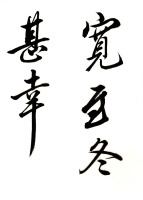 寬至冬
甚幸